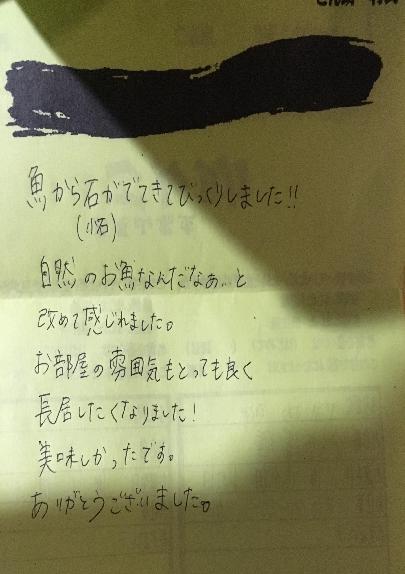 魚から石がでてきてびっくりしました!!
(小石)
自然のお魚なんだなぁ…と
改めて感じれました。
お部屋の雰囲気もとっても良く
長居したくなりました!
美味しかったです。
ありがとうございました。